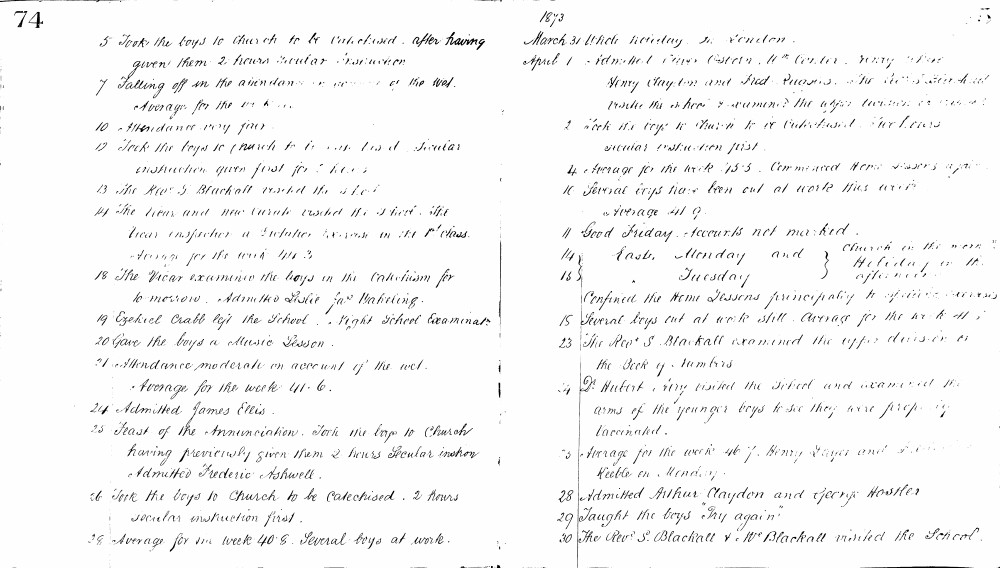 74
5 Took the boys to Church to be Catechised. after having
given them 2 hours secular instruction
7 Falling off in the attendance on account of the wet.
Average for the week
10 Attendance very fair.
12 Took the boys to church to be Catechised. Secular
instruction given first for 2 hours
13 The Revd. S. Blackall visited the school
14 The Vicar and new Curate visited the School. The
Vicar inspected a Dictation Exercise in the 1st class.
Average for the week 44.3
18 The Vicar examined the boys in the Catechism for
to morrow. Admitted Leslie Jas. Wakeling.
19 Ezekiel Crabb left the School. Night School Examinatn
20 Gave the boys a Music Lesson.
21 Attendance moderate on account of the wet.
Average for the week 41.6.
24 Admitted James Ellis.
25 Feast of the Annunciation. Took the boys to Church
having previously given them 2 hours Secular instron
Admitted Frederic Ashwell.
26 Took the boys to Church to be Catechised. 2 hours
secular instruction first.
28 Average for the week 40.8. Several boys at work.
1873
March 31 Whole holiday. In London.
April 1 Admitted Osborn, Wm Center, Henry
Henry Claydon and Fred. The
visited the school & examined the upper division
2 Took the boys to Church to be Catechised. Two hours
secular instruction first.
4 Average for the week 45.5. Commenced Home Lessons again
10 Several boys have been out at work this week
Average 41.9
11 Good Friday. Accounts not marked.
14 Easter Monday and } Church in the morng
15 " Tuesday } Holiday in the
afternoon.
Confined the Home Lessons principally to exercises
15 Several boys out at work still. Average for the week 41.5
23 The Revd S. Blackall examined the upper division in
the Book of Numbers
24 Dr. Hubert visited the School and examined the
arms of the younger boys to see they were properly
Vaccinated.
25 Average for the week 46.7. Henry Sayer and
Keeble on Monday.
28 Admitted Arthur Claydon and George Hostler
29 Taught the boys "Try again"
30 The Revd S. Blackall & Mrs Blackall visited the School.